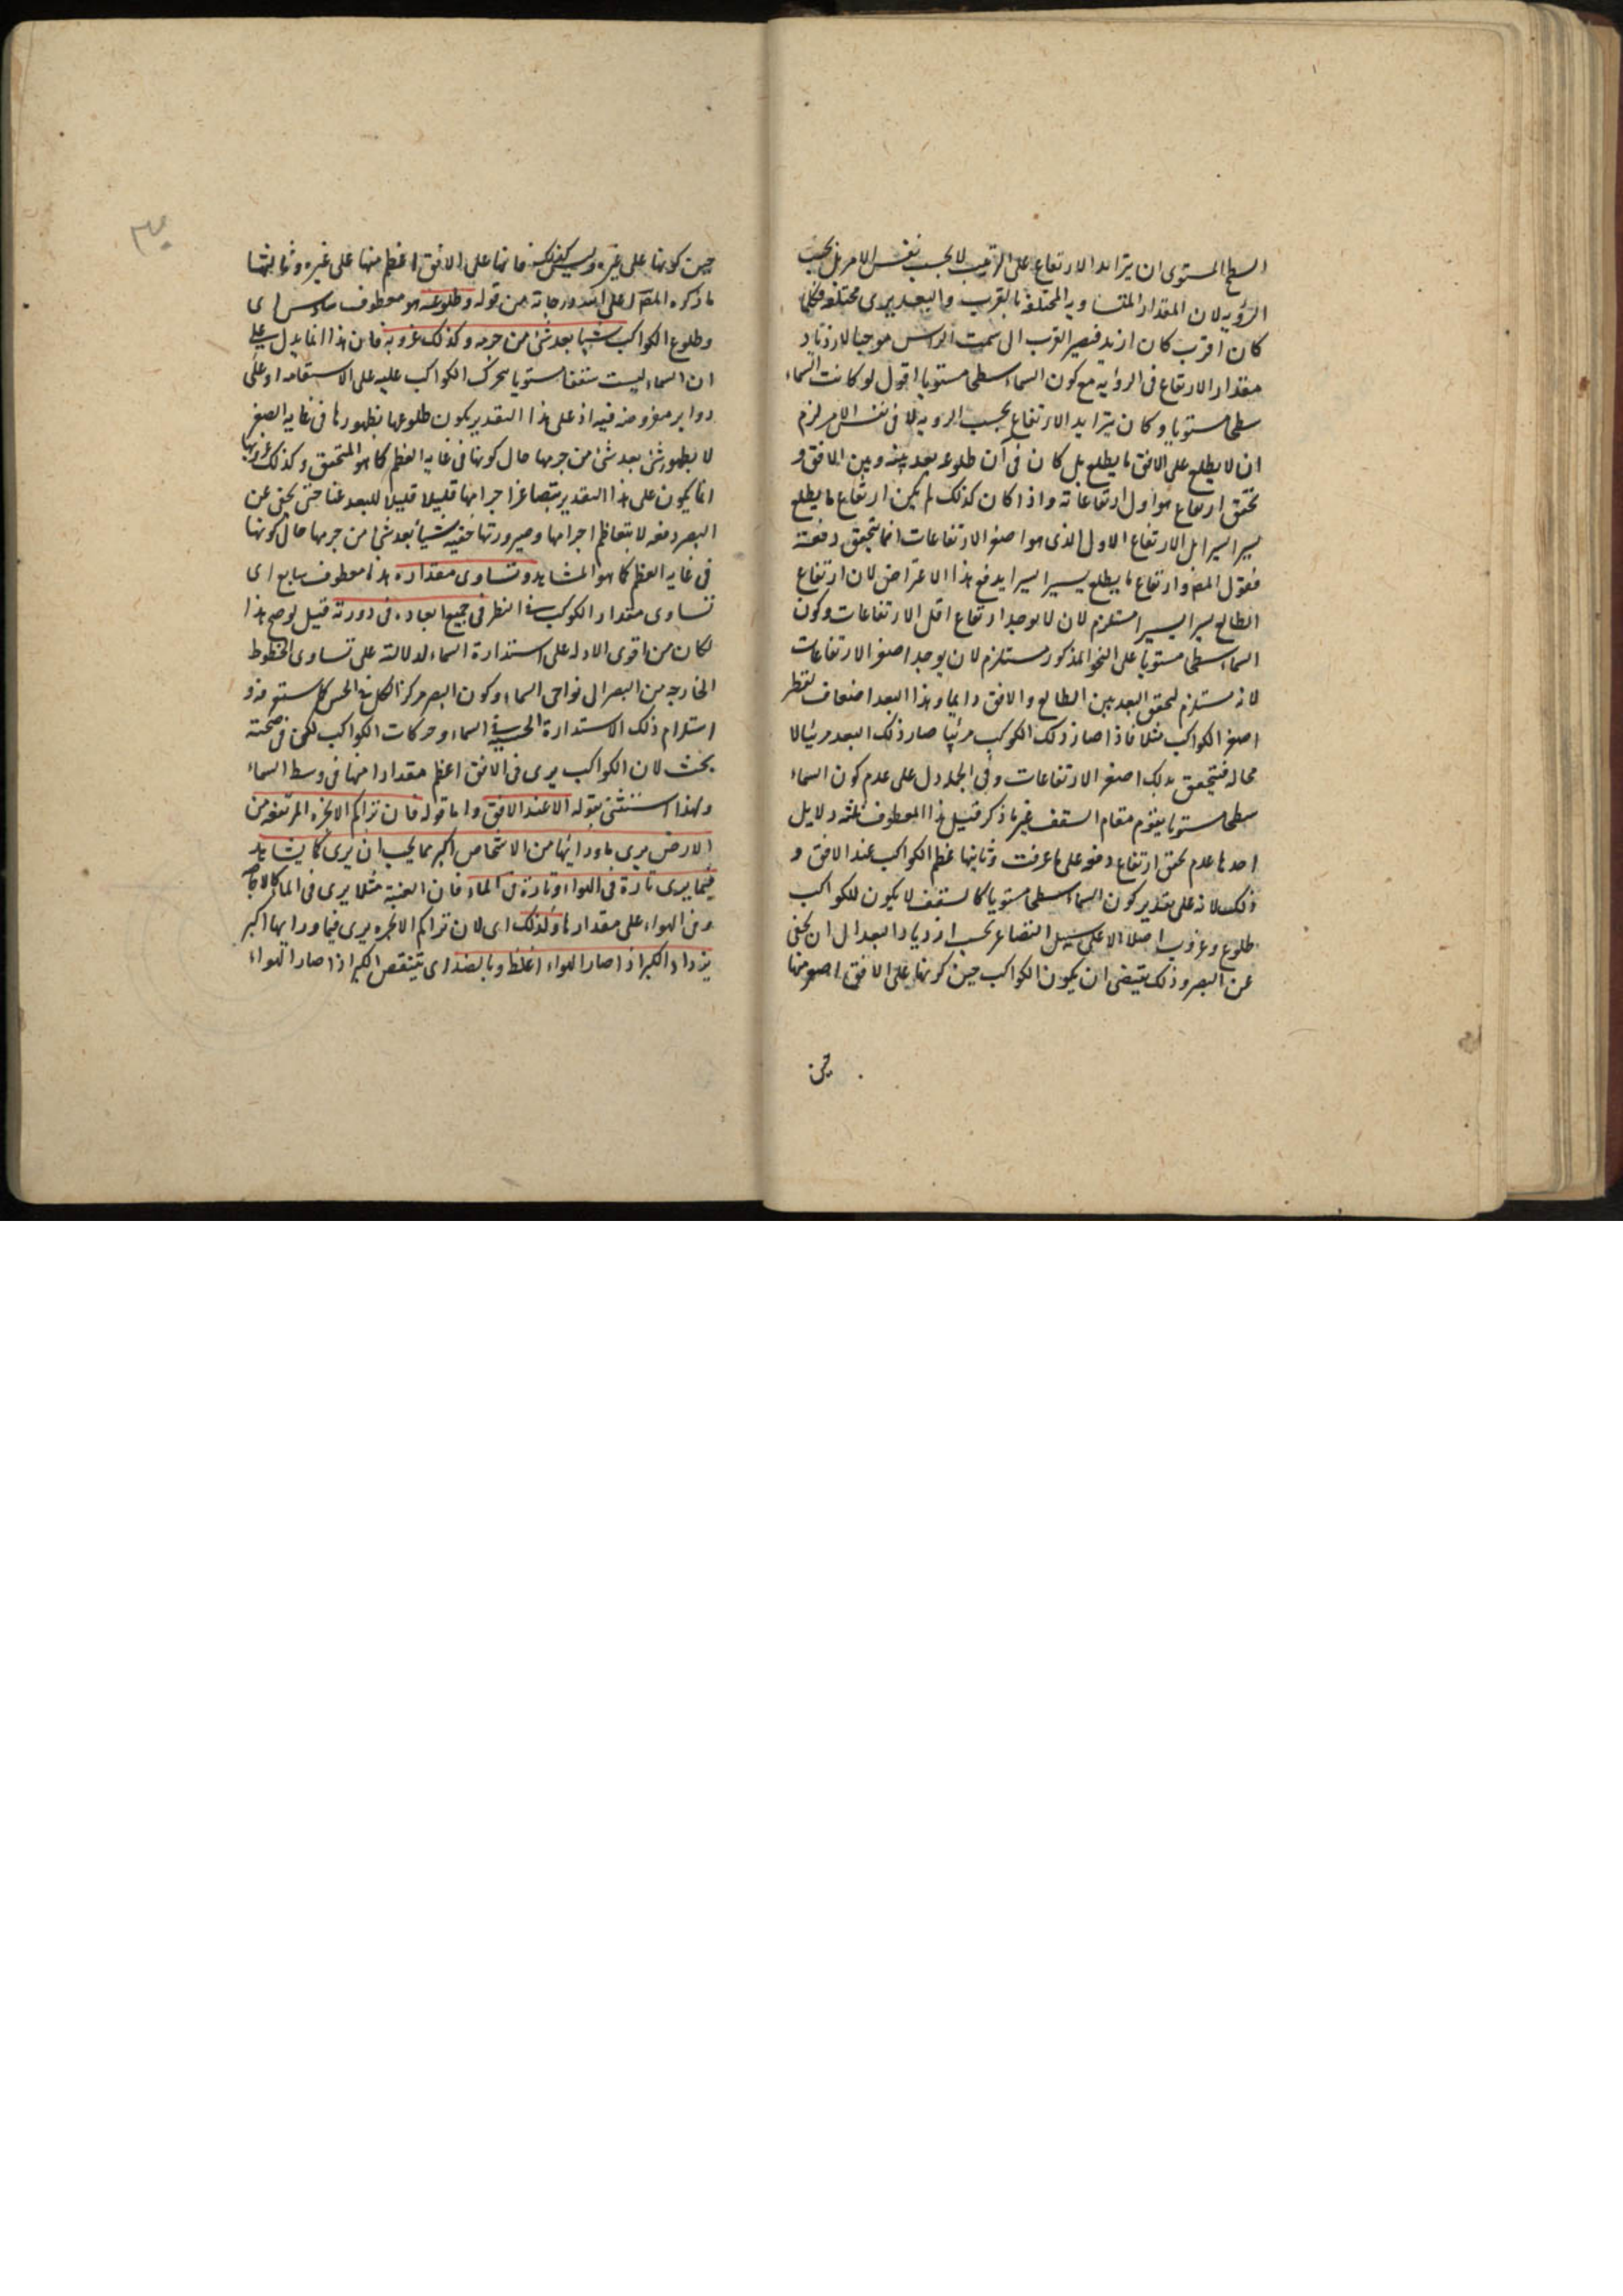 السطح المستوى ان يتزايد الارتفاع على الترتيب لا بحسب نفس الامر بل بحسب
الرؤيه لان المقدار المتساويه المختلفة بالقرب والبعد يرى مختلفة فكلما
كان اقرب كان ازيد فيصير القرب الى سمت الراس موجبا لازدياد
مقدار الارتفاع فى الرؤايه مع كون السماء سطحا مستويا اقول لو كانت السماء
سطحا مستويا وكان يتزايد الارتفاع بحسب الرويه لا فى نفس الامر لزم
ان لا يطلع على الافق ما يطلع بل كان فى آن طلوعه بعد بينه وبين الافق و
تحقق ارتفاع هو اول ارتفاعاته واذا كان كذلك لم يكن ارتفاع ما يطلع
يسيرا يسيرا بل الارتفاع الاول الذى هو اصغر الارتفاعات انما يتحقق دفعة
فقول المص وارتفاع ما يطلع يسيرا يسيرا يدفع هذا الاعتراض لان ارتفاع
الطالع يسيرا يسيرا مستلزم لان لا يوجد ارتفاع اقل الارتفاعات وكون
السماء سطحا مستويا على النحو المذكور مستلزم لان يوجد اصغر الارتفاعات
لانه مستلزم لتحقق البعد بين الطالع والافق دايما وهذا البعد اضعاف لقطر
اصغر الكواكب مثلا فاذا صار ذلك الكوكب مرئيا صار ذلك البعد مرئيا لا
محاله فيتحقق بذلك اصغر الارتفاعات وفى الجملة دل على عدم كون السماء
سطحا مستويا يقوم مقام السقف غير ما ذكر قبيل هذا المعطوف ثلثه دلايل
احدها عدم تحقق ارتفاع دفعه على ما عرفت وثانيها عظم الكواكب عند الافق و
ذلك لانه على تقدير كون السماء سطحا مستويا كالسقف لا يكون للكواكب
طلوع وغروب اصلا الا على سبيل التصاغر بحسب ازدياد البعد الى ان يخفى
عن البصر وذلك يقتضى ان يكون الكواكب حين كونها على الافق اصغر منها
حين
حين كونها على غيره وليس كذلك فانها على الافق اعظم منها على غيره وثالثها
ما ذكره المص على من قوله وطلوعه هو معطوف سادس اى
وطلوع الكواكب شيئا بعد شئ من جرمه وكذلك غروبه فان هذا انما يدل على
ان السماء ليست سقفا مستويا يتحرك الكواكب عليه على الاستقامه او على
دواير مفروضه فيه اذ على هذا التقدير يكون طلوعها بظهورها فى غايه الصغر
لا بظهور شئ بعد شئ من جرمها حال كونها فى غايه العظم كما هو المتحقق وكذلك غروبها
انما يكون على هذا التقدير بتصاغر اجرامها قليلا قليلا للبعد عنا حتى يخفى عن
البصر دفعه لا بتعاظم اجرامها وصيرورتها خفيه شيئا بعد شئ من جرمها حال كونها
فى غايه العظم كما هو المشاهد وتساوى مقداره هذا معطوف سابع اى
تساوى مقدار الكوكب فى النظر فى جميع ابعاده فى دورته قيل لو صح هذا
لكان من اقوى الادله على استدارة السماء لدلالته على تساوى الخطوط
الخارجه من البصر الى نواحى السماء وكون البصر مركز الكل فى الحس
استلزام ذلك الاستدارة الحسية فى السماء وحركات الكواكب لكن فى صحته
بحث لان الكواكب يرى فى الافق اعظم مقدارا منها فى وسط السماء
ولهذا استثنى بقوله الا عند الافق واما قوله فان تراكم الابخره المرتفعه من
الارض يرى ما ورائها من الاشخاص اكبر مما يجب ان يرى كما يشاهد
فيما يرى تارة فى الهواء وتارة فى الماء فان العنبة مثلا يرى فى الماء كالاجاص
وفى الهواء على مقدارها ولذلك اى لان تراكم الابخره يرى فيما ورايها اكبر
يزداد الكبر اذا صار الهواء اغلظ وبالضد اى يتنقص الكبر اذا صار الهواء